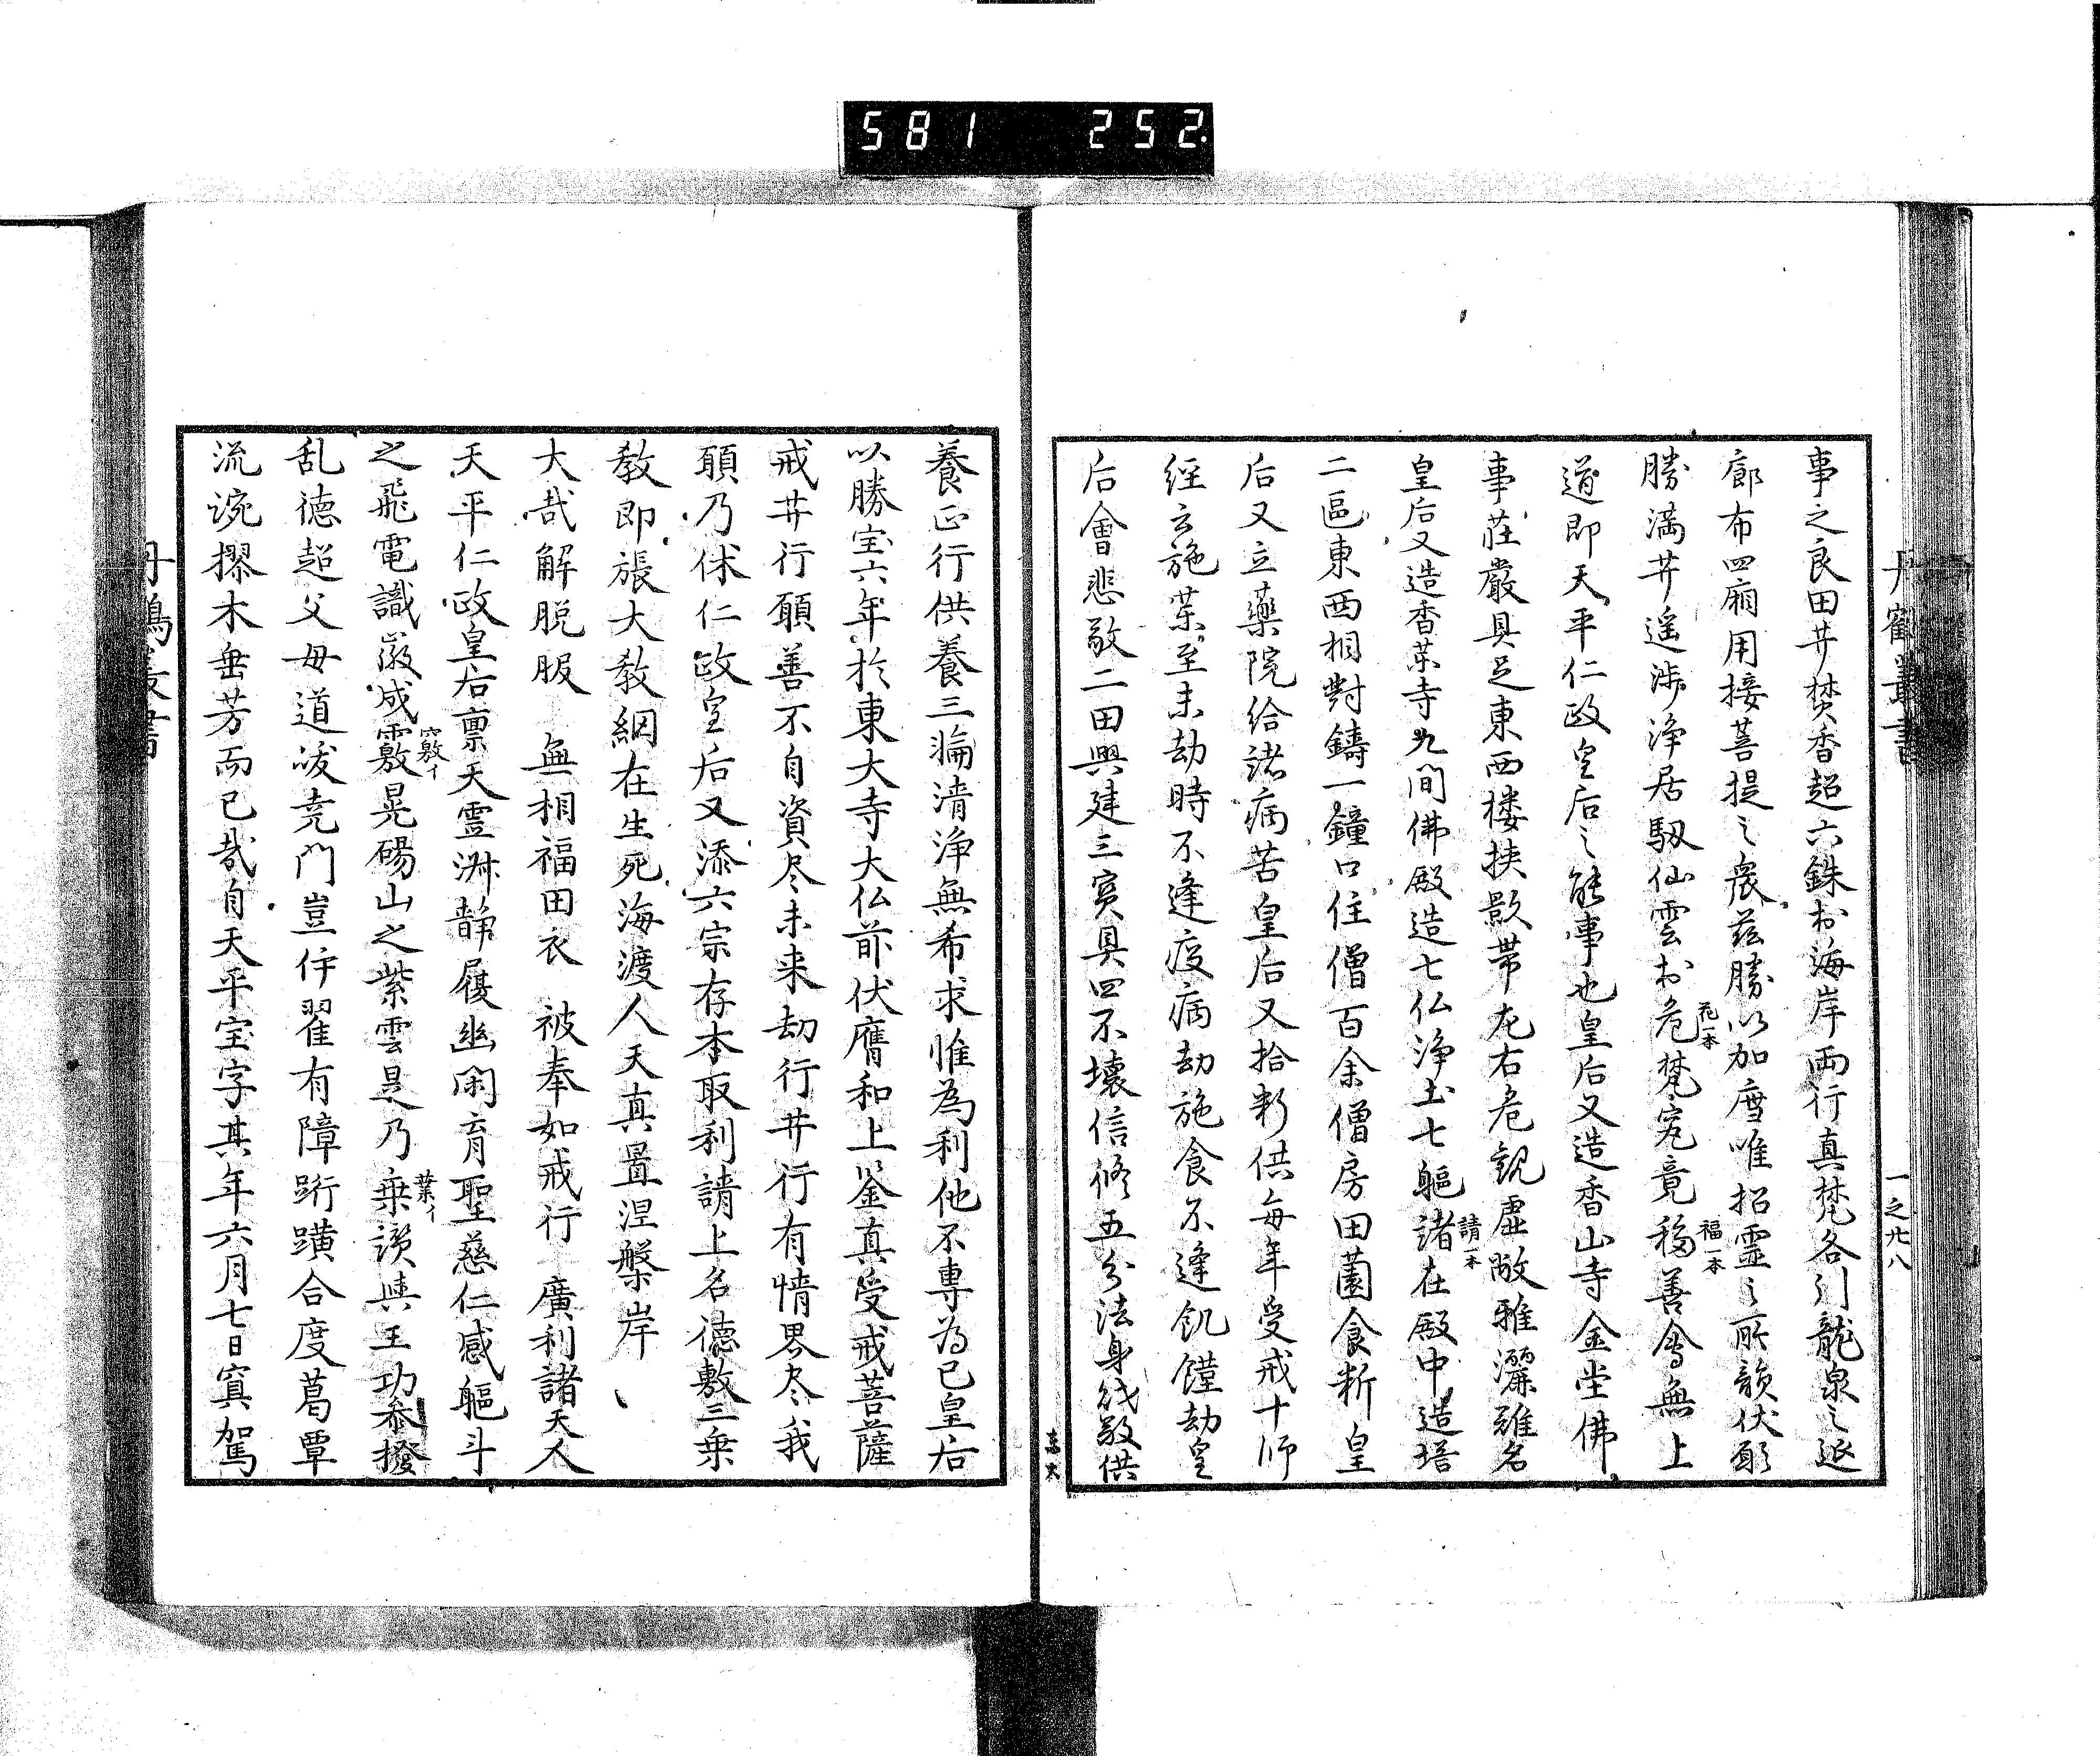 581 252.
丹鶴叢書
一之廿八
事之良田井焚香超六銖於海岸両行真梵各引龍泉之逐
廊布四廂用接菩提之衆茲勝以加度唯招霊之所韻伏願
勝満井遥渉浄居馭仙雲於危梵寃竟穏善禽無上
花一本
福一本
道即天平仁政皇后之能事也皇后又造香山寺金堂佛
事荘嚴具足東西楼挟影帯左右危観虚敞雅灑雖名
皇后又造香薬寺九間佛殿造七仏浄土七軀諸在殿中造塔
請一本
二區東西相對鑄一鐘口住僧百余僧房田薗食料皇
后又立藥院給諸病苦皇后又拾料供毎年受戒十師
經云施薬至未劫時不逢疫病劫施食不逢飢饉劫皇
后會悲敬二田興建三宝具四不壊信修五分法身能敬供
養正行供養三輪清浄無希求惟為利他不專為己皇后
以勝宝六年於東大寺大仏前伏膺和上鉴真受戒菩薩
戒井行願善不自資尽未来劫行井行有情界尽我
願乃休仁政皇后又添六宗存本取利請上名徳敷三乗
教即張大教網在生死海渡人天真置涅槃岸
大哉解脱服 無相福田衣 被奉如戒行 廣利諸天人
天平仁政皇后禀天霊淋静履幽閑育聖慈仁感軀斗
之飛電識嶶成靉晃碭山之紫雲是乃乗讃興王功叅撥
乱徳超父母道峻尭門豈侔翟有障䟰蹟合度葛覃
流涴摎木垂芳而已哉自天平宝字其年六月七日寘駕